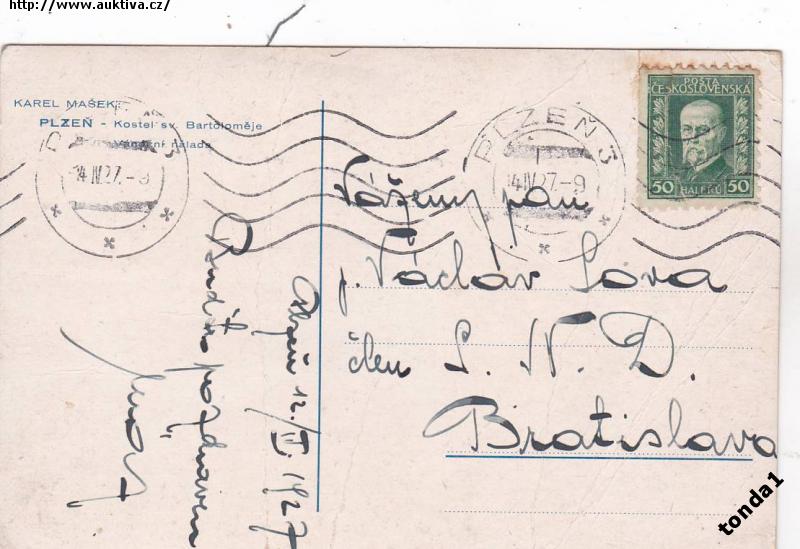 http://www.auktiva.cz/
KAREL MAŠEK:
PLZEŇ - Kostel sv. Bartoloměje
Vánoční nálada
PLZEŇ 3
14 IV 27.-9
PLZEŇ 3
1
14 IV 27.-9
POŠTA
ČESKOSLOVENSKÁ
50 HALÉŘŮ 50
Vážený pan
p. Václav Sova
člen S. N. D.
Bratislava
Plzeň 12./IV. 1927
pozdravem
tonda1